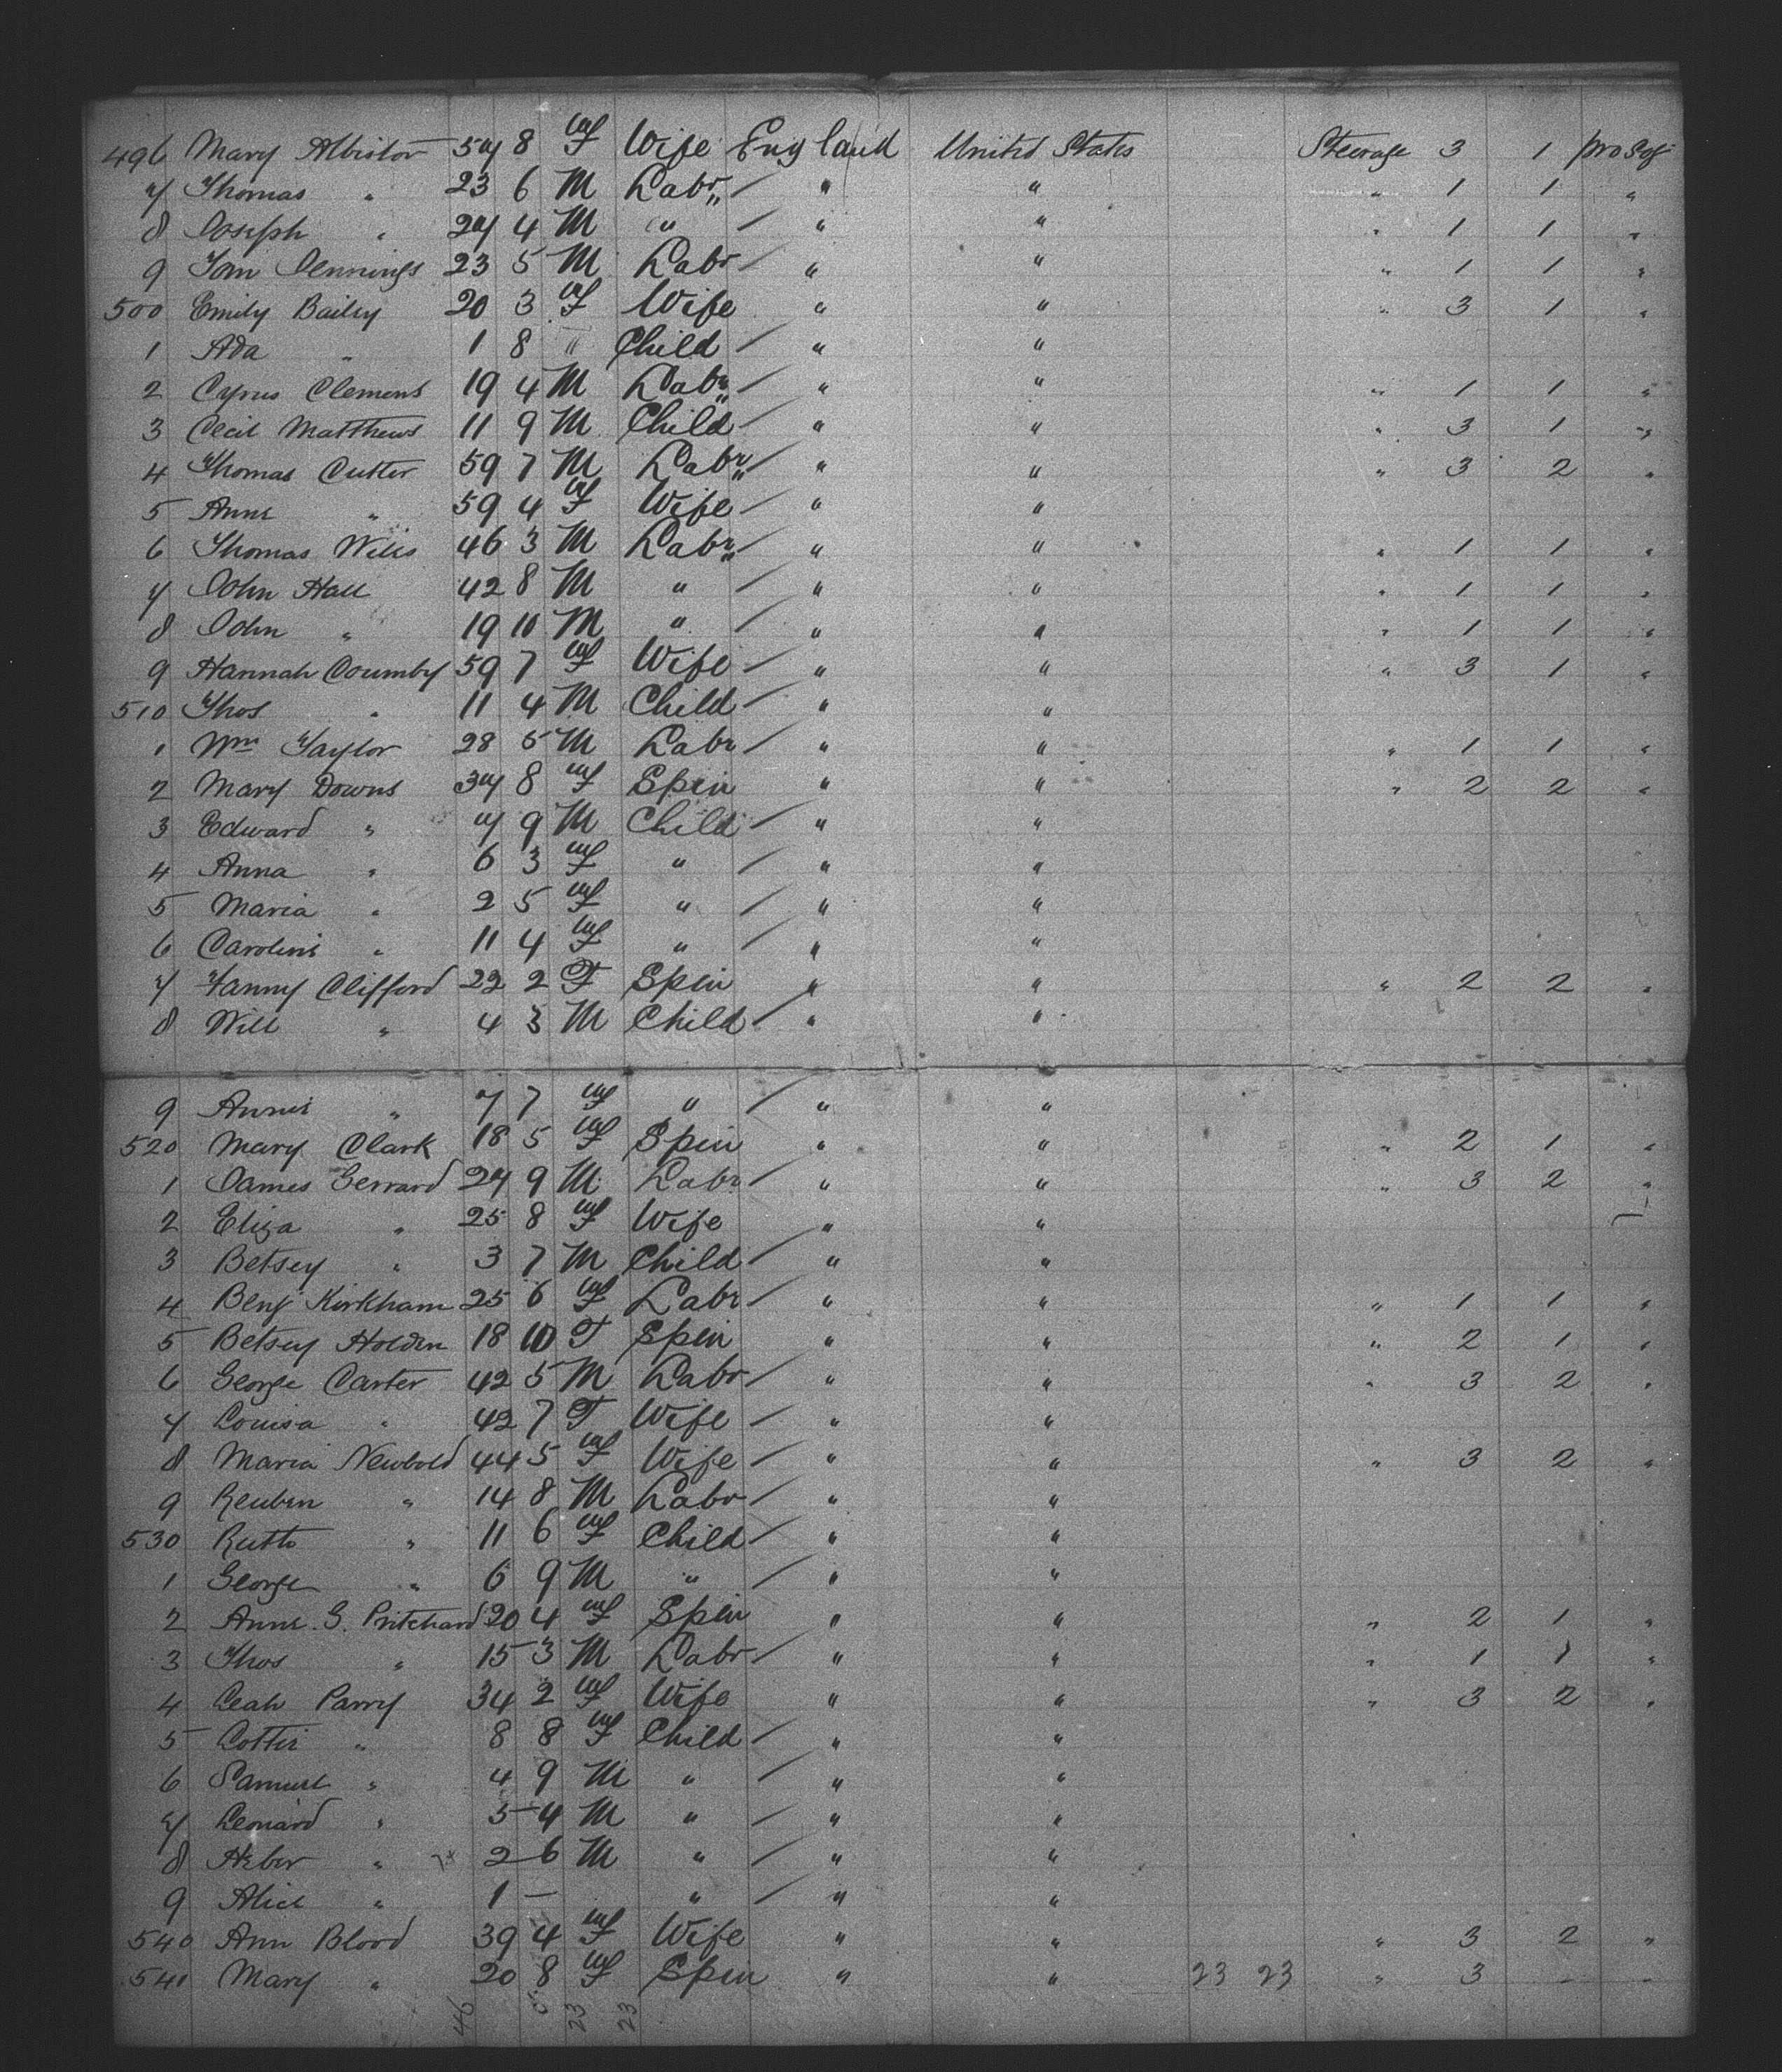 496 Mary Albiston 57 8 F Wife England United States Steerage 3 1 pro Soj
7 Thomas " 23 6 M Labr " " " 1 1 "
8 Joseph " 27 4 M " " " " 1 1 "
9 Tom Jennings 23 5 M Labr " " " 1 1 "
500 Emily Bailey 20 3 F Wife " " " 3 1 "
1 Ada " 1 8 " Child " "
2 Cyrus Clemens 19 4 M Labr " " " 1 1 "
3 Cecil Matthews 11 9 M Child " " " 3 1 "
4 Thomas Cutter 59 7 M Labr " " " 3 2 "
5 Anne " 59 4 F Wife " "
6 Thomas Wilks 46 3 M Labr " " " 1 1 "
7 John Hall 42 8 M " " " " 1 1 "
8 John " 19 10 M " " " " 1 1 "
9 Hannah Coumby 59 7 F Wife " " " 3 1 "
510 Thos " 11 4 M Child " "
1 Wm Taylor 28 5 M Labr " " " 1 1 "
2 Mary Downs 37 8 F Spin " " " 2 2 "
3 Edward " 7 9 M Child " "
4 Anna " 6 3 F " " "
5 Maria " 2 5 F " " "
6 Caroline " 11 4 F " " "
7 Fanny Clifford 22 2 F Spin " " " 2 2 "
8 Will " 4 3 M Child " "
9 Annie " 7 7 F " " "
520 Mary Clark 18 5 F Spin " " " 2 1 "
1 James Gerrard 27 9 M Labr " " " 3 2 "
2 Eliza " 25 8 F Wife " "
3 Betsey " 3 7 M Child " "
4 Benj Kirkham 25 6 F Labr " " " 1 1 "
5 Betsey Holden 18 10 F Spin " " " 2 1 "
6 George Carter 42 5 M Labr " " " 3 2 "
7 Louisa " 42 7 F Wife " "
8 Maria Newbold 44 5 F Wife " " " 3 2 "
9 Reuben " 14 8 M Labr " "
530 Ruth " 11 6 F Child " "
1 George " 6 9 M " " "
2 Anne G. Pritchard 20 4 F Spin " " " 2 1 "
3 Thos " 15 3 M Labr " " " 1 1 "
4 Leah Parry 34 2 F Wife " " " 3 2 "
5 Lottie " 8 8 F Child " "
6 Samuel " 4 9 M " " "
7 Leonard " 5 4 M " " "
8 Heber " 2 6 M " " "
9 Alice " 1 — " " "
540 Ann Blood 39 4 F Wife " " " 3 2 "
541 Mary " 20 8 F Spin " " 23 23 " 3 - -
46 23 23